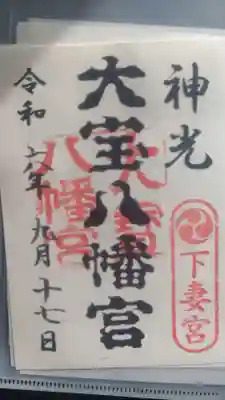 神光
下妻宮
大宝八幡宮
八幡宮
令和六年九月十七日